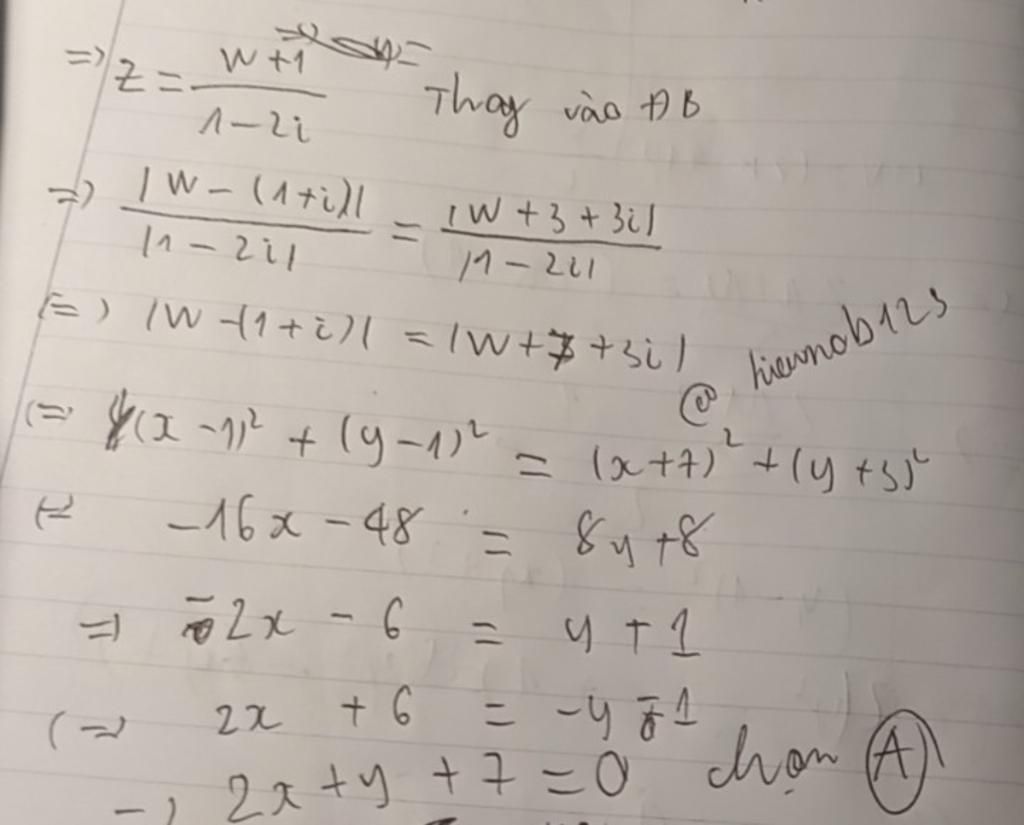 => z = (w+1)/(1-2i) Thay vào ĐB
=> |w-(1+i)|/|1-2i| = |w+3+3i|/|1-2i|
(=) |w-(1+i)| = |w+7+3i|
@hieunob123
(=) (x-1)² + (y-1)² = (x+7)² + (y+3)²
(=) -16x - 48 = 8y + 8
=) -2x - 6 = y + 1
(=) 2x + 6 = -y - 1
=) 2x + y + 7 = 0 chọn A